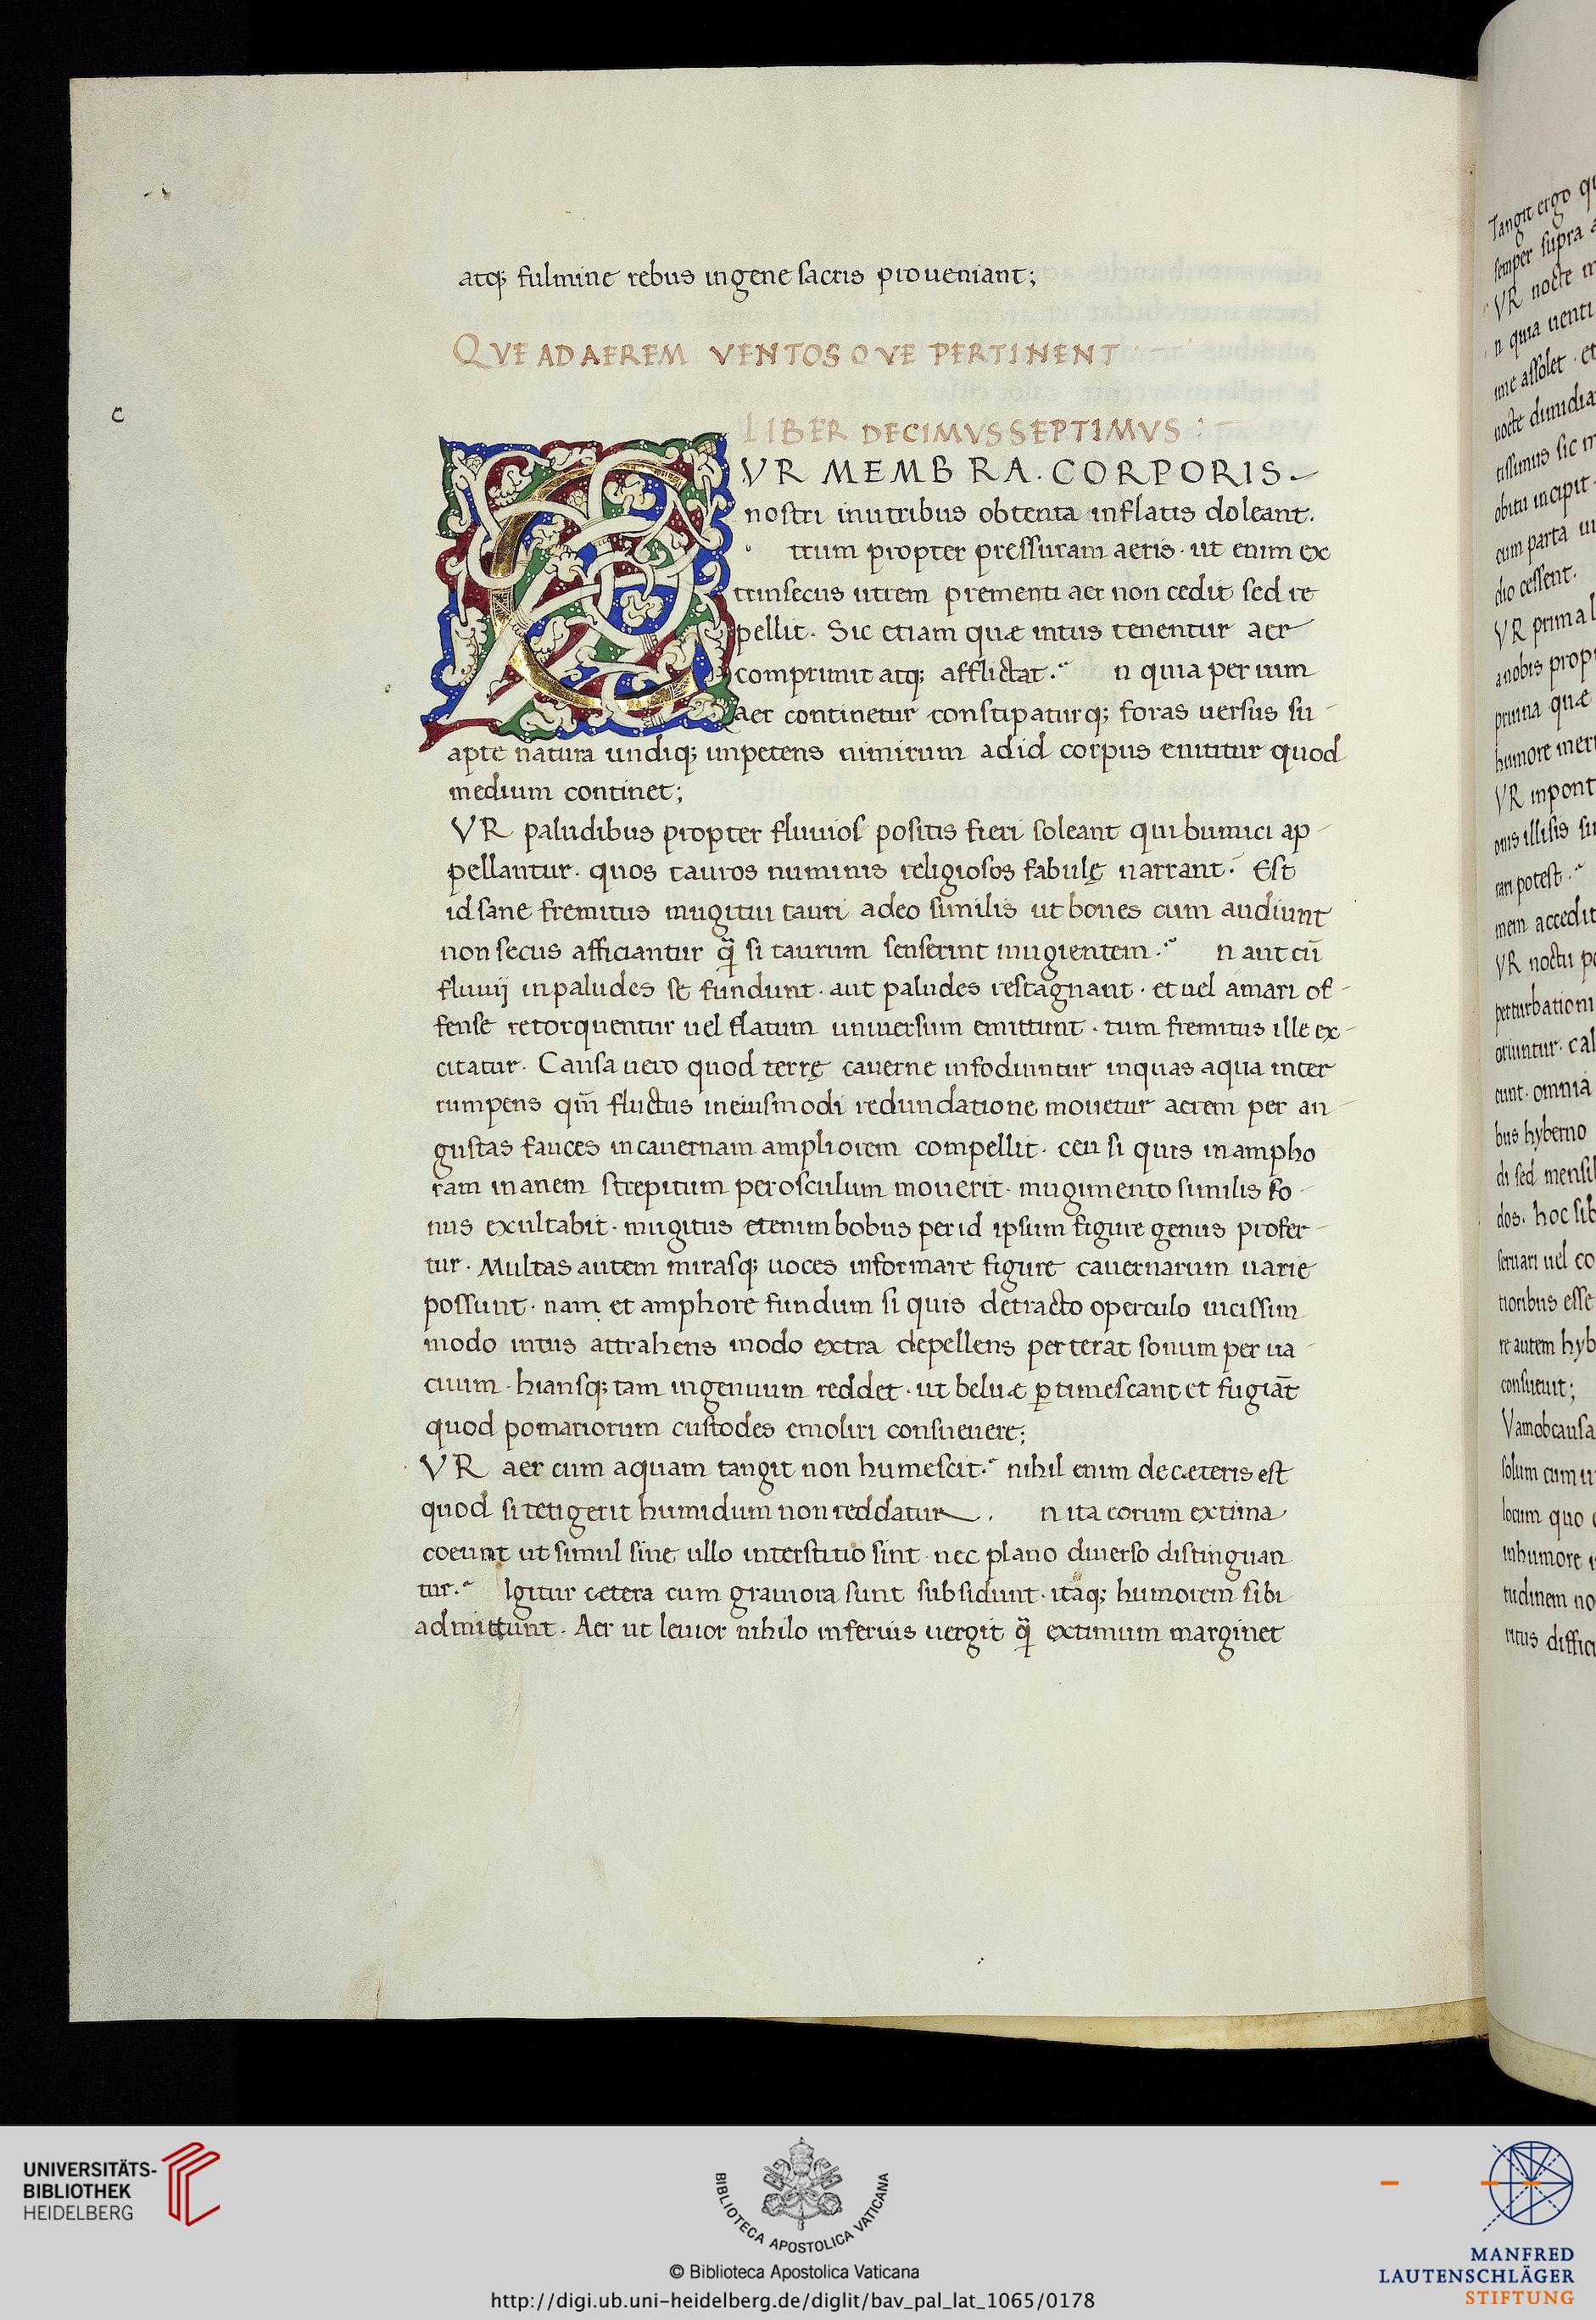 atq; fulmine rebus in gene sacris proveniant;
QVE AD AEREM VENTOSQVE PERTINENT
c
LIBER DECIMVSSEPTIMVS :
CVR MEMBRA. CORPORIS
nostri in utribus obtenta inflatis doleant.
trum propter pressuram aeris · ut enim ex
trinsecus utrem prementi aer non cedit sed re
pellit. Sic etiam quæ intus tenentur aer
comprimit atq; afflictat. n quia per uim
aer continetur constipaturq; foras uersus su
apte natura undiq; impetens nimirum ad id corpus enititur quod
medium continet;
VR paludibus propter fluuios positis fieri soleant qui bumici ap
pellantur. quos tauros numinis religiosos fabulę narrant. Est
id sane fremitus mugitui tauri adeo similis ut boues cum audiunt
non secus afficiantur q̃ si taurum senserint mugientem. n aut cū
fluuij in paludes se fundunt. aut paludes restagnant · et uel a mari of
fense retorquentur uel flatum uniuersum emittunt · tum fremitus ille ex
citatur. Causa uero quod terrę cauerne infodiuntur in quas aqua inter
rumpens qm̄ fluctus in eiusmodi redundatione mouetur aerem per an
gustas fauces in cauernam ampliorem compellit. ceu si quis in ampho
ram inanem strepitum per osculum mouerit · mugimento similis so
nus exultabit · mugitus etenim bobus per id ipsum figure genus profer
tur. Multas autem mirasq; uoces informare figure cauernarum uarie
possunt. nam et amphore fundum si quis detracto operculo uicissim
modo intus attrahens modo extra depellens perterat sonum per ua
cuum · hiansq; tam ingenuum reddet · ut beluæ ꝑtimescant et fugiāt
quod pomariorum custodes emoliri consueuere;
VR aer cum aquam tangit non humescit. nihil enim de cæteris est
quod si tetigerit humidum non reddatur . n ita eorum extima
coeunt ut simul sine ullo interstitio sint · nec plano diuerso distinguan
tur. Igitur cætera cum grauiora sunt subsidunt · itaq; humorem sibi
admittunt. Aer ut leuior nihilo inferius uergit q̃ extimum marginet
Tangit ergo
semper supra
VR nocte
n quia uenti
ime assolet · et
nocte dimidia
tissimus sic
obitu incipit
cum parta
dio cessent.
VR prima
a nobis prop
pruina quæ
humore
VR in pont
onis illisis
rari potest.
mem accedit
VR noctu
perturbation
oriuntur. cal
cunt. omnia
bus hyberno
di sed mensi
dos. hoc sib
seruari uel co
tioribus esse
re autem hyb
consueuit;
Vam ob causa
solum cum
locum quo
in humore
tudinem no
ritus diffic
UNIVERSITÄTS-
BIBLIOTHEK
HEIDELBERG
BIBLIOTECA APOSTOLICA VATICANA
© Biblioteca Apostolica Vaticana
http://digi.ub.uni-heidelberg.de/diglit/bav_pal_lat_1065/0178
MANFRED
LAUTENSCHLÄGER
STIFTUNG